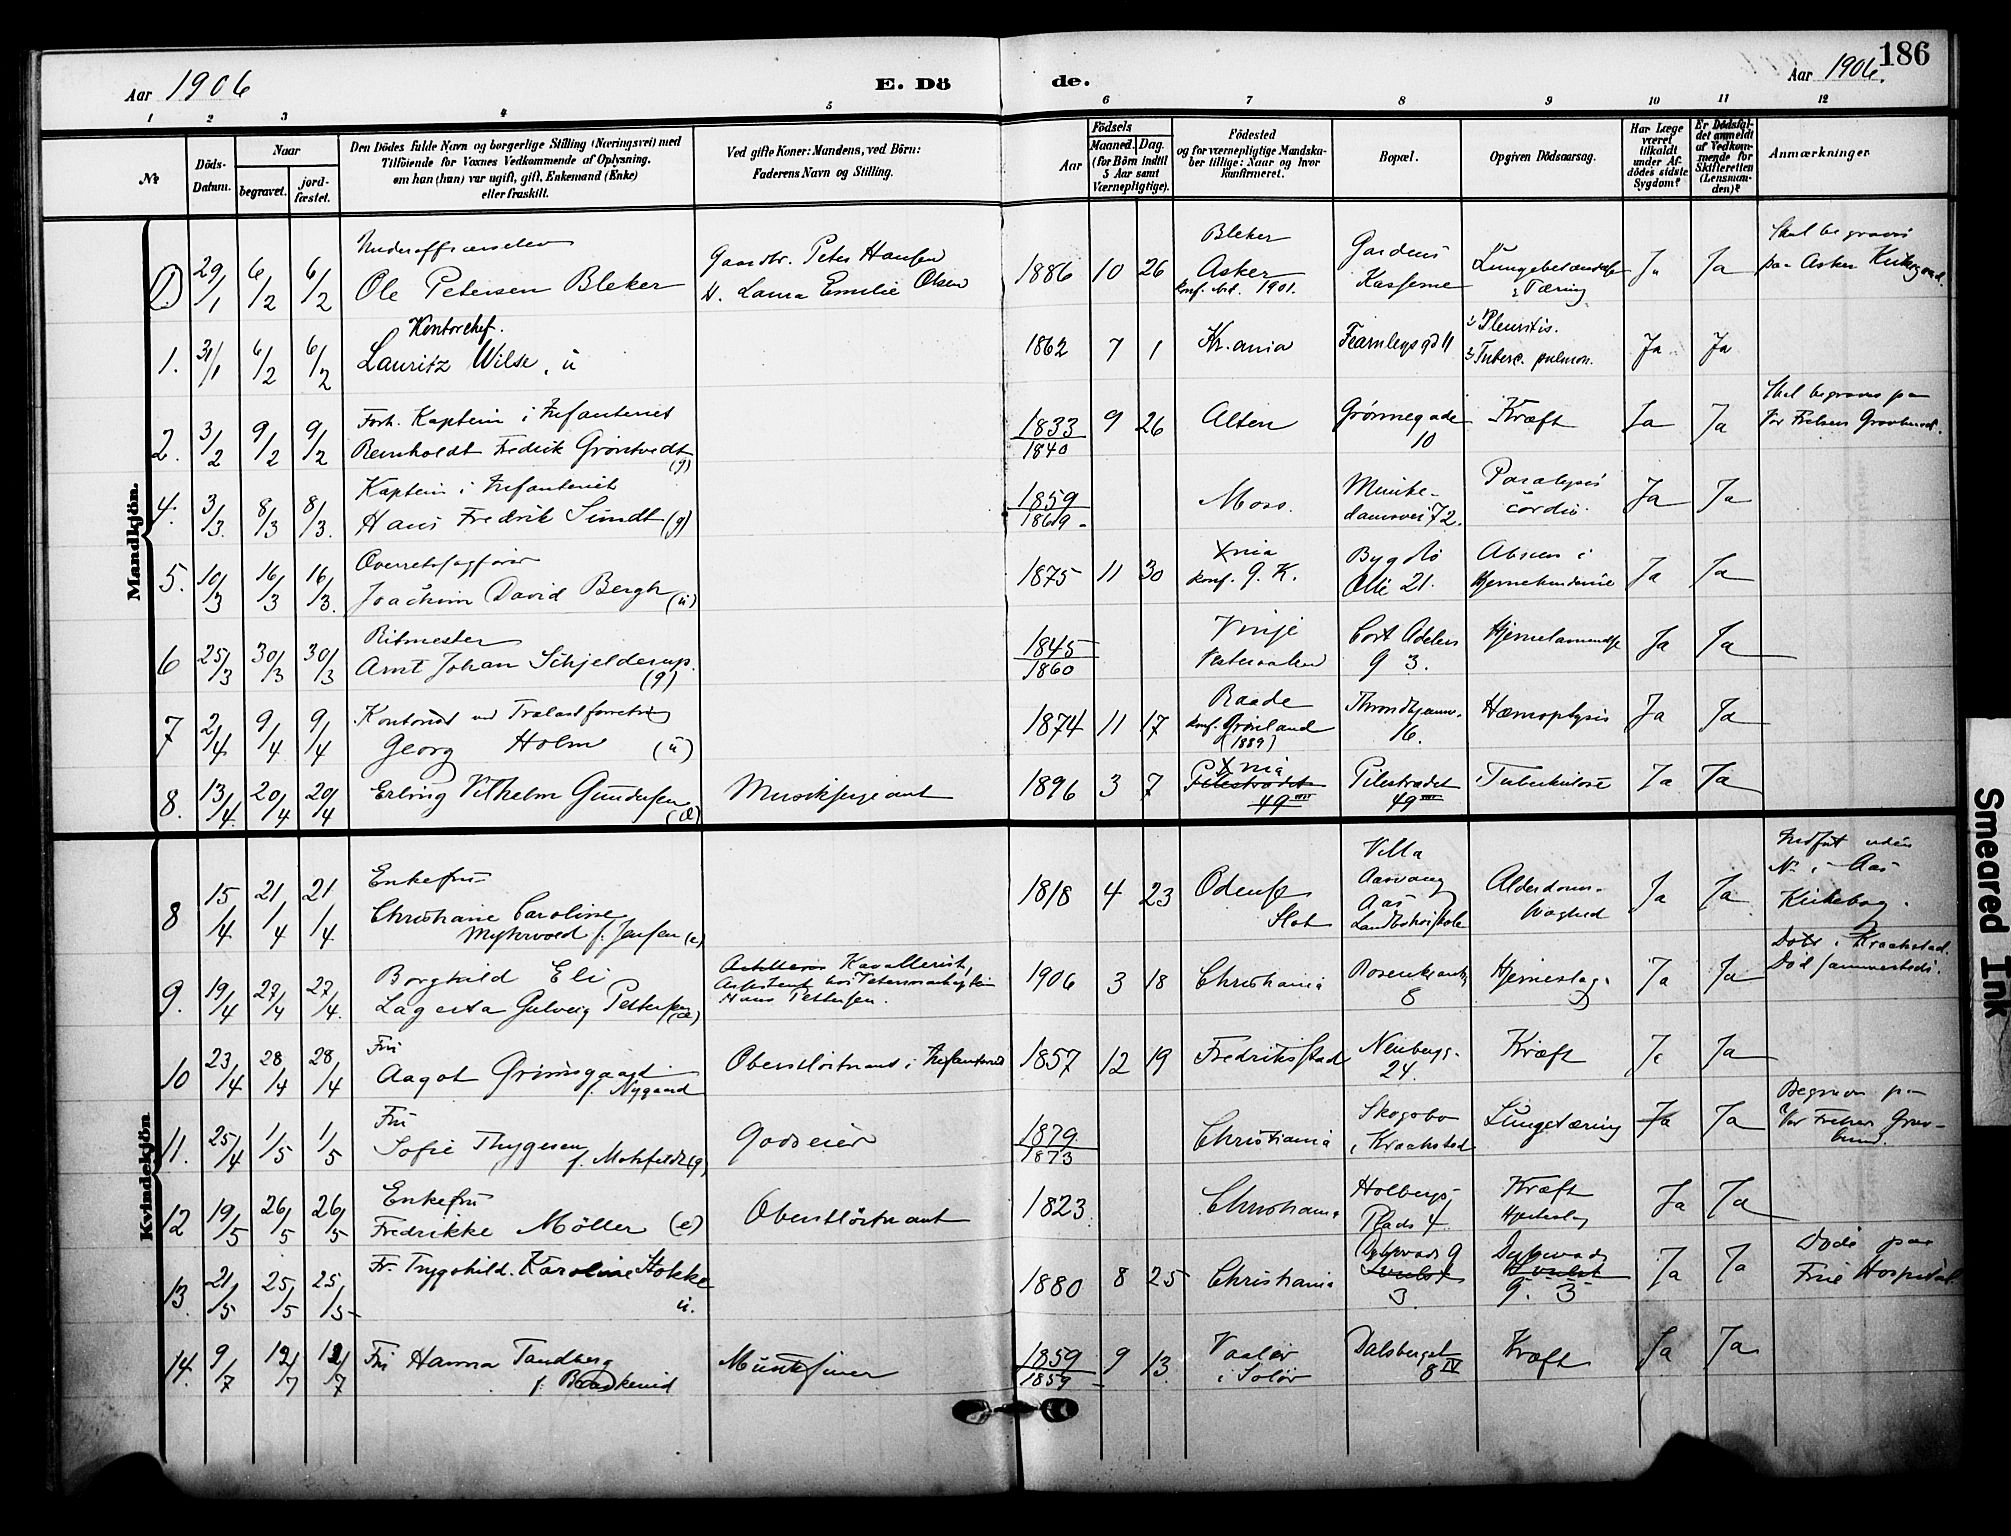 186
Aar 1906
E. Dö de.
Aar 1906.
1 2 3 4 5 6 7 8 9 10 11 12
No
Döds-Datum.
Naar
begravet.
jord-fæstet.
Den Dödes fulde Navn og borgerlige Stilling (Næringsvei) med
Tilföiende for Voxnes Vedkommende af Oplysning,
om han (hun) var ugift, gift, Enkemand (Enke)
eller fraskilt.
Ved gifte Koner: Mandens, ved Börn:
Faderens Navn og Stilling.
Födsels
Aar
Maaned. Dag.
(for Börn indtil
5 Aar samt
Værnepligtige).
Födested
og for værnepligtige Mandska-
ber tillige: Naar og hvor
konfirmeret.
Bopæl.
Opgiven Dödsaarsag.
Har Læge
været
tilkaldt
under Af-
dödes sidste
Sygdom?
Er Dödsfal-
det anmeldt
af Vedkom-
mende for
Skifteretten
(Lensman-
den)?
Anmærkninger
Mandkjön.
1. 29/1 6/2 6/2 Underofficerselev
Ole Petersen Bleker
Gaardbr. Peter Hansen
Laura Emilie Olsen
1886 10 26 Bleker
Asker
konf. 1901.
Gardens
Kaserne
Lungebetændelse
Tæring
Ja Ja Skal begraves
paa Asker Kirkegaard.
1. 31/1 6/2 6/2 Kontorchef.
Lauritz Wilse, u
1862 7 1 Kr.ania Fearnleysgd 11
Pleuritis.
Tuberc. pulmon.
Ja Ja
2. 3/2 9/2 9/2 Forh. Kaptein i Infanteriet
Reinholdt Fredrik Gröntvedt (g)
1833/1840 9 26 Alten Grønnegade
10
Kræft Ja Ja Skal begraves paa
Vor Frelsers Gravlund.
4. 3/3. 8/3 8/3. Kaptein i Infanteriet
Hans Fredrik Sundt (g)
1859/1869 Moss. Munke-
damsvei 72.
Paralysis
cordis.
Ja Ja
5. 10/3 16/3 16/3. Overretssagfører
Joachim David Bergh (u)
1875 11 30 Xnia
konf. G. K.
Bygdø
Alle 21.
Absces i
Hjernehinderne
Ja Ja
6 25/3 30/3 30/3 Ritmester
Arnt Johan Schjelderup.
(g)
1845/1860 Vinje
Vesteraalen
Cort Adelers
g 3.
Hjernebetændelse Ja Ja
7 2/4 9/4 9/4 Kontorist ved Trælastforretning
Georg Holm (u)
1874 11 17 Raade
konf. Grønland
(1889)
Throndhjemsv.
16.
Hæmoptysis Ja Ja
8. 13/4. 20/4 20/4 Erling Vilhelm Gundersen
Musiksergeant
1896 3 7 Xnia
Pilestrædet
49 III
Pilestrædet
49 III
Tuberkulose Ja Ja
Kvindekjön
8 15/4 21/4 21/4 Enkefru
Christiane Caroline
Myhrvold f. Jensen (e)
1818 4 23 Odense
Slot
Villa
Aasvang
Aas
Landbrhøiskole
Alderdoms-
svaghed
Ja Ja Indført uden
N. i Aas
Kirkebog.
9. 19/4 27/4 27/4. Borghild Eli
Lagerta Gulveig Pettersen
Artilleris Kavallerist,
Hans Pettersen.
1906 3 18 Christiania Rosenkrantzg
8
Hjerneslag. Ja Ja Døbt i Kraakstad.
Død sammesteds.
10 23/4 28/4 28/4 Fru
Aagot Grimsgaard
f. Nygaard
Oberstlöitnant i Infanteriet
1857 12 19 Fredriksstad Neubergg.
24.
Kræft Ja Ja
11. 25/4 1/5 1/5 Fru
Sofie Thygesen
f. Mohrfeldt (g)
Godseier
1879/1873 Christiania Skogsbo
i Kraakstad
Lungetæring Ja Ja Begraven paa
Vor Frelsers Grav-
lund.
12 19/5 26/5 26/5 Enkefru
Fredrikke Möller (e)
Oberstlöitnant
1823 Christiania Holbergs-
Plads 4
Kræft
Hjerteslag
Ja Ja
13. 21/5 25/5 25/5 Fr. Trygohild. Karoline Stokke
u.
1880 8 25 Christiania Dybwads g
3
Dybwads
g. 3
Ja Ja Døde paa
Frue Hospital
14. 9/7 12/7 12/7 Fru Hanna Tandberg
f. Braskerud
Musikfører
1859/1859 9 13. Vaaler
i Solör
Dalsberget
8 IV
Kræft Ja Ja
Smeared Ink